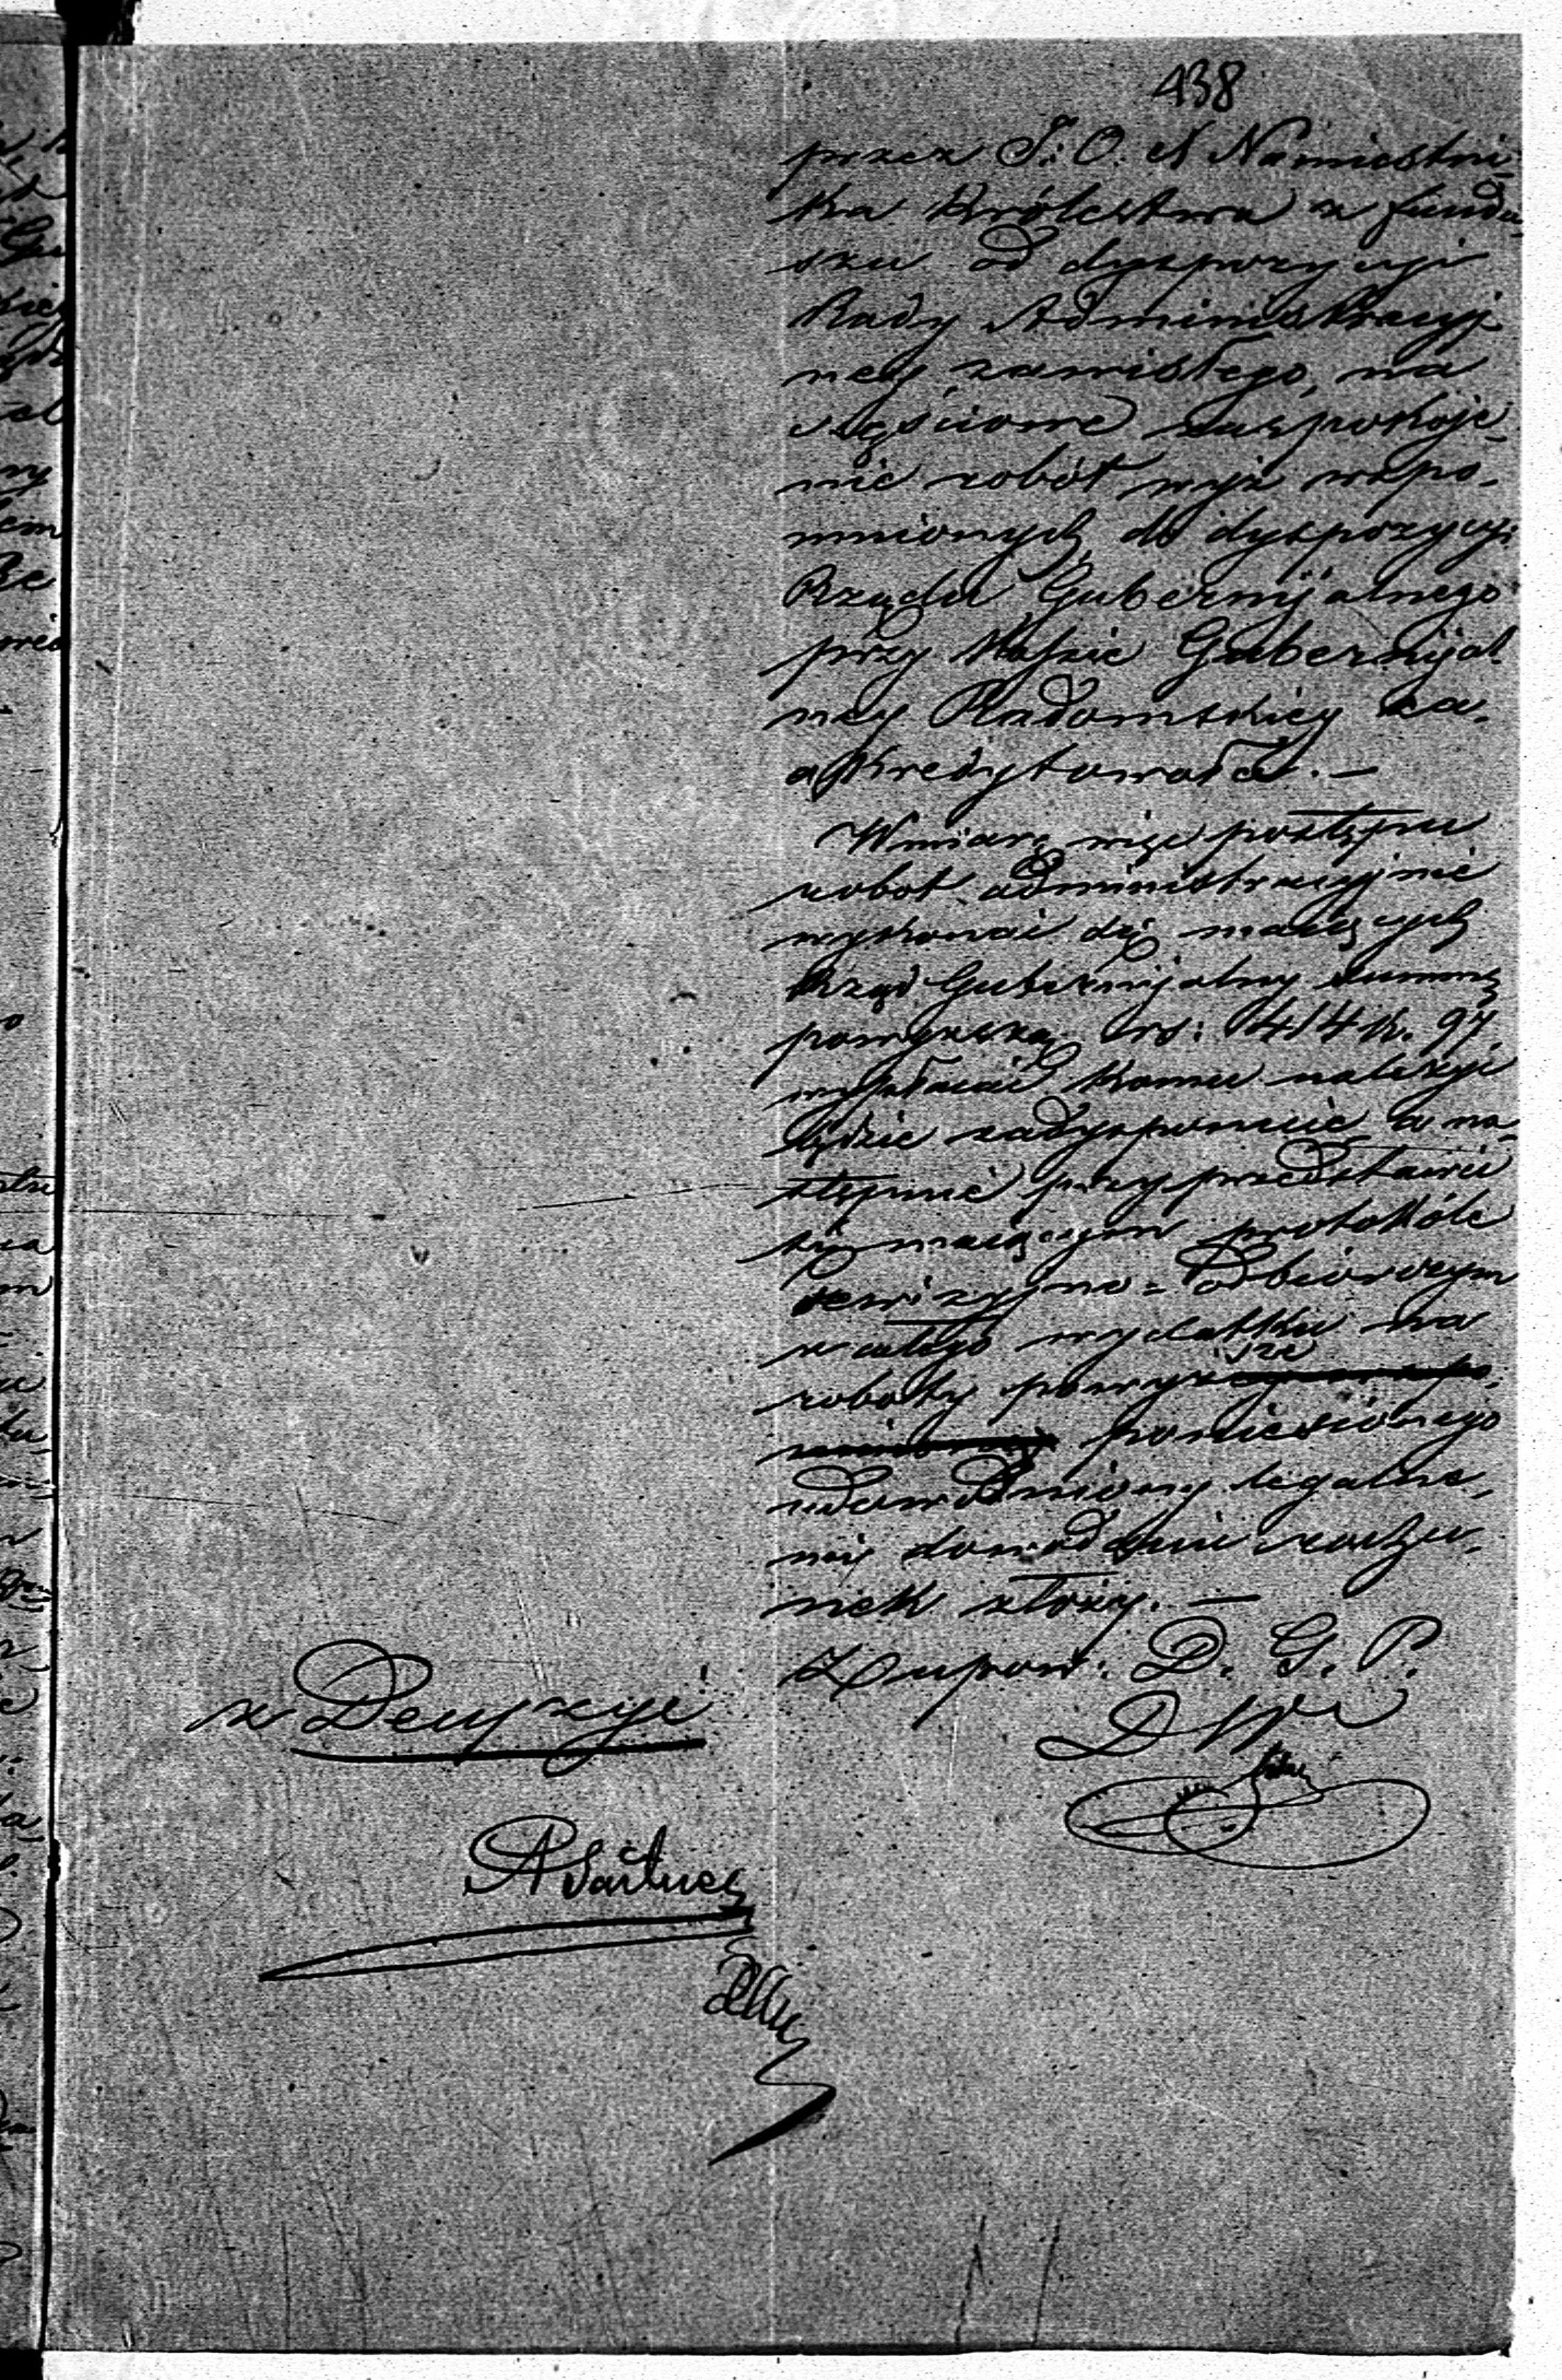 438
przez J. O. X Namiestni-
ka Królestwa z fundu-
szu od dyspozycji
Rady Administracyj-
ney zawisłego, na
częściowe zaspokoje-
nie robót wyż wspo-
mnionych do dyspozycyi
Rządu Gubernijalnego
przy Kassie Gubernijal-
ney Radomskiey za-
akredytowała. —
W miarę więc postępu
robot administracyjnie
wykonać się maiących
Rząd Gubernijalny summę
powyższą rs: 414 k. 97
wypłacić komu należy
będzie zadysponuie a na-
stępnie przy przedstawić
się maiącym protokóle
Rewizyjno = Odbiorczym
z całego wydatku na
roboty powyższe
poniesionego
udowodniony legalne-
mi dowodami rachu-
nek złoży. —
Z upow. D. G. P.
z Decyzyi